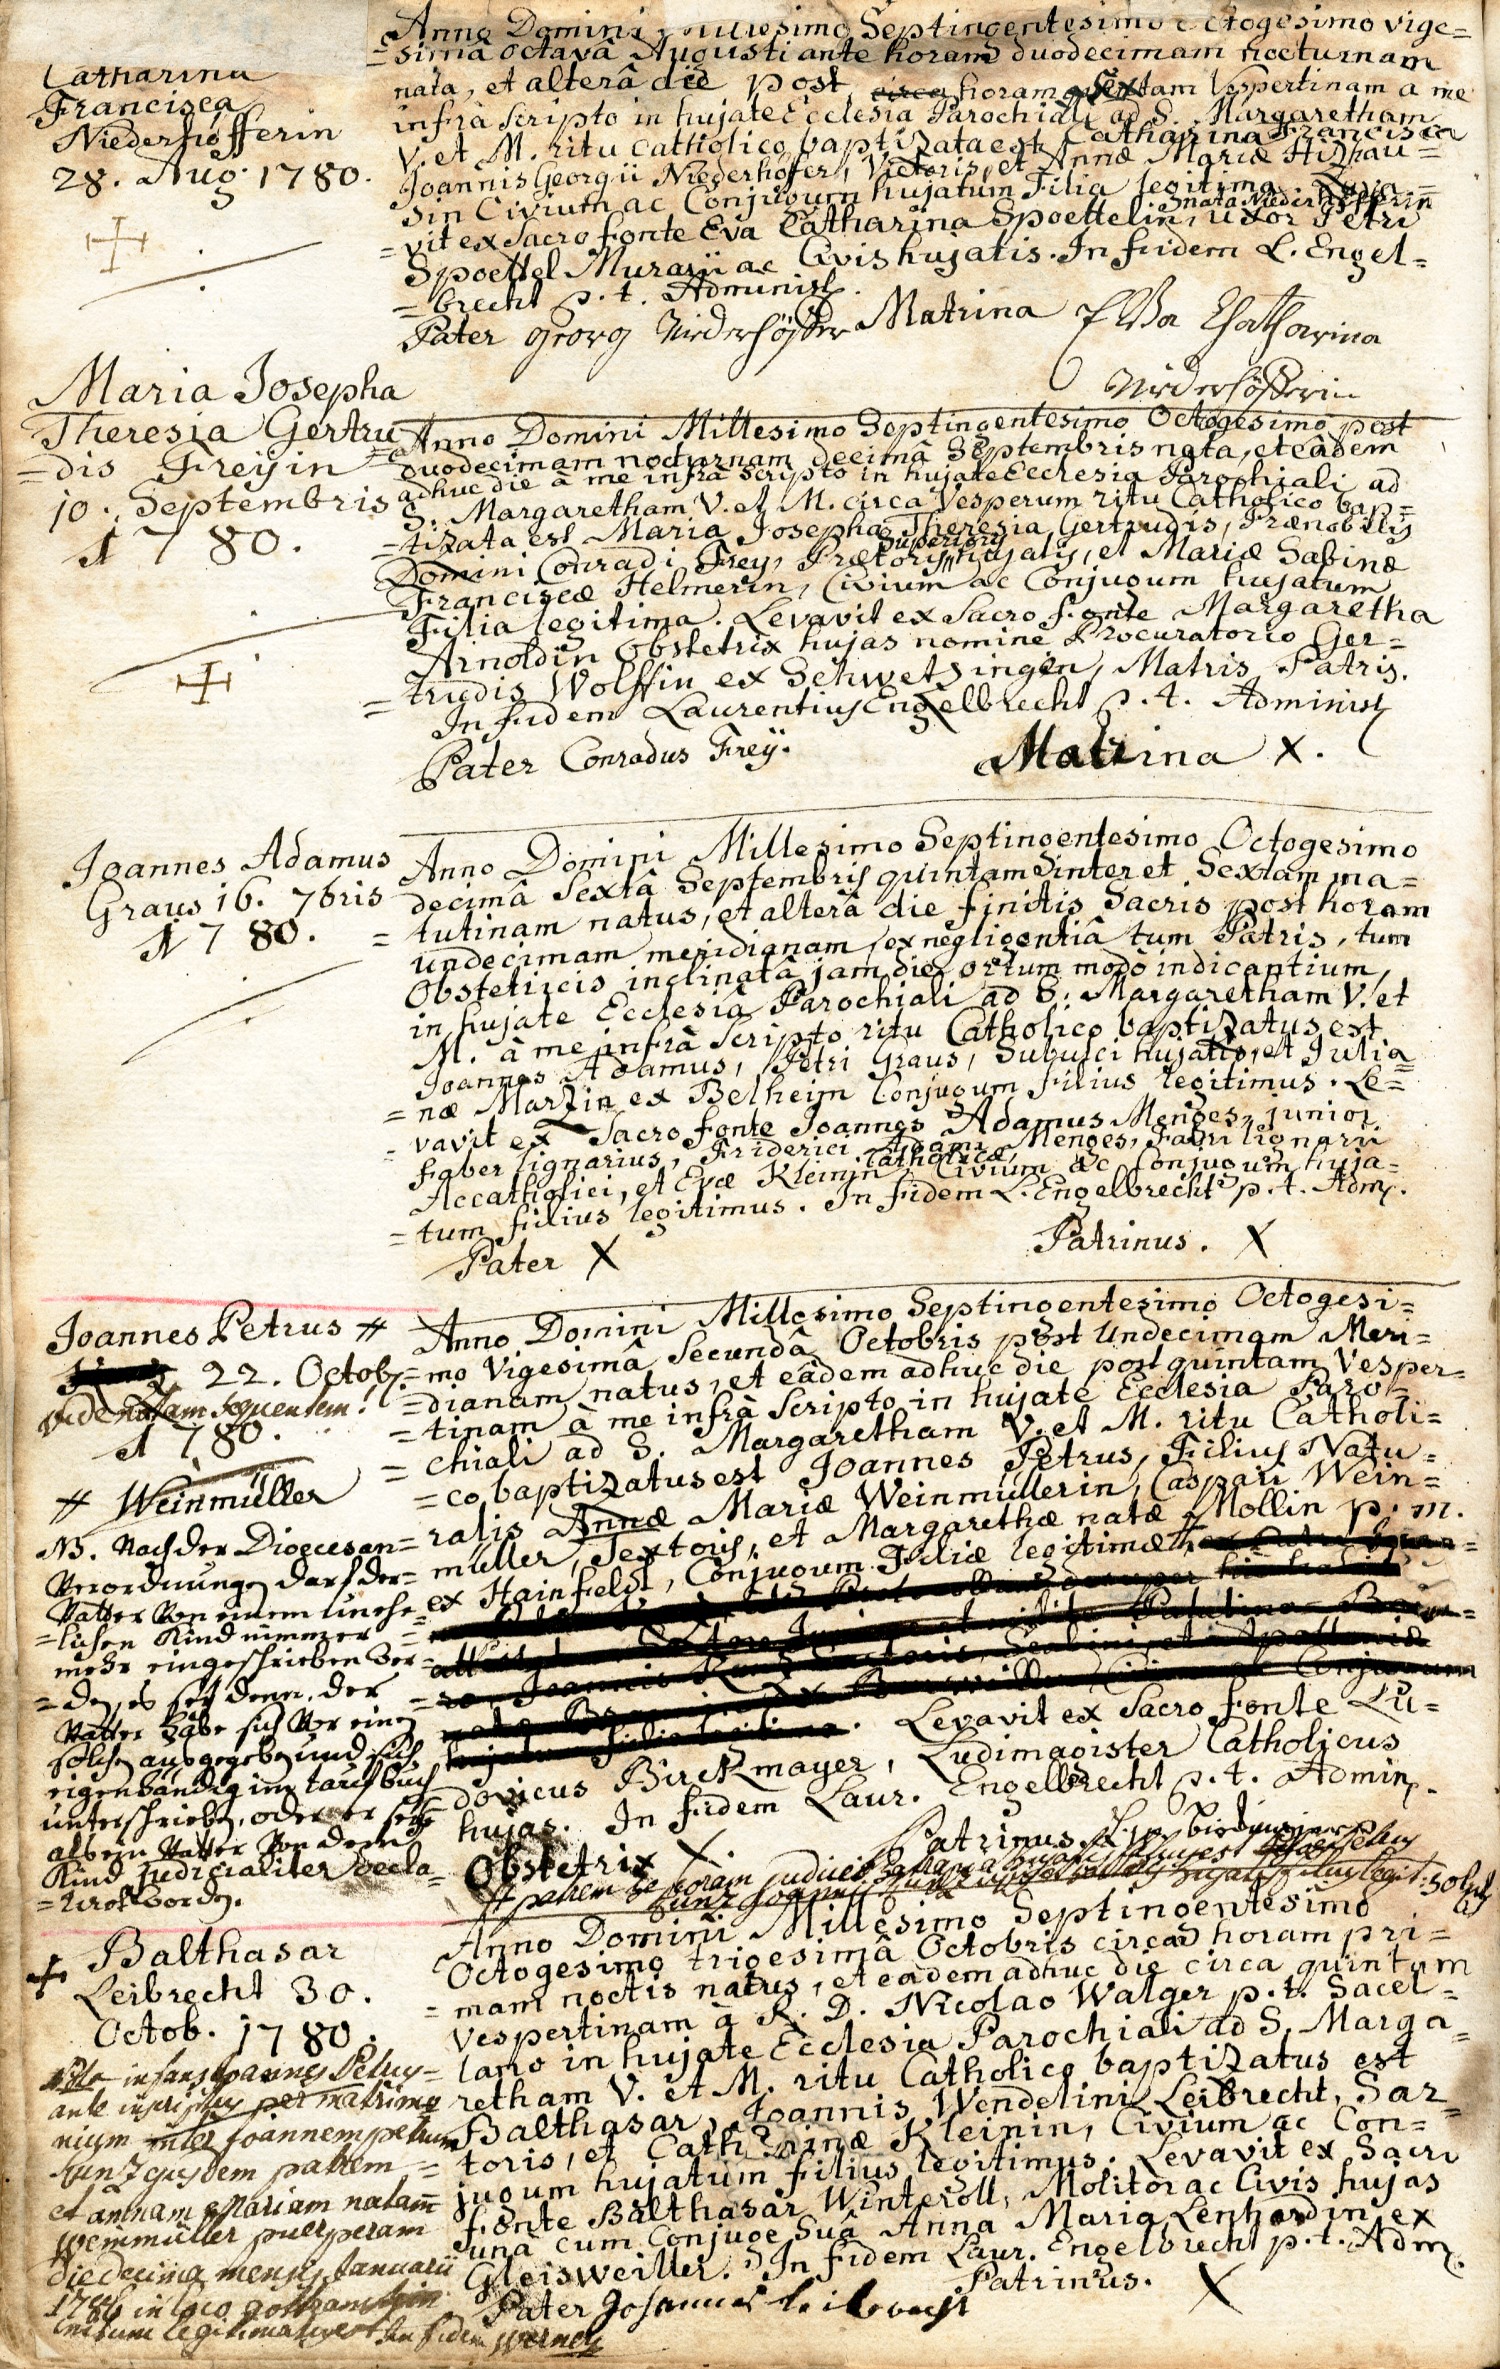 Catharina
Francisca
Niederhöfferin
28. Aug. 1780.
Anno Domini Millesimo Septingentesimo Octogesimo vige=
=simâ octavâ Augusti ante horam duodecimam nocturnam
nata, et alterâ die post circa horam Sextam Vespertinam a me
infrà Scripto in hujate Ecclesia Parochiali ad S. Margaretham
V. et M. ritu catholico baptizata est Catharina Francisca
Joannis Georgii Niederhöfer, Vietoris, et Annæ Mariæ Hizhau=
sin Civium ac Conjugum hujatum Filia legitima. Leva=
=vit ex Sacro fonte Eva Catharina Spoettelin, nata Niederhöfferin uxor Petri
Spoettel Murarii ac Civis hujatis. In fidem L. Engel=
=brecht p. t. Administ.
Pater Georg Niederhöffer Matrina Eva Chatharina
Niederhöfferin
Maria Josepha
Theresia Gertru
=dis Freyin
10. Septembris
1780.
Anno Domini Millesimo Septingentesimo Octogesimo post
duodecimam nocturnam decimâ Septembris nata, et eâdem
adhuc die à me infrà scripto in hujate Ecclesia Parochiali ad
S. Margaretham V. et M. circa Vesperum ritu Catholico bap=
=tizata est Maria Josepha Theresia Gertrudis, Prænobilis
Domini Conradi Frey, Prætoris Superioris hujatis, et Mariæ Sabinæ
Franciscæ Helmerin, Civium ac Conjugum hujatum
Filia legitima. Levavit ex Sacro fonte Margaretha
Arnoldin Obstetrix hujas nomine Procuratorio Ger=
=trudis Wolffin ex Schwetzingen, Matris Patris.
In fidem Laurentius Engelbrecht p. t. Administ.
Pater Conradus Freÿ. Matrina X.
Joannes Adamus
Graus 16. 7bris
1780.
Anno Domini Millesimo Septingentesimo Octogesimo
decimâ Sextâ Septembris quintam inter et Sextam ma=
=tutinam natus, et alterâ die finitis Sacris post horam
undecimam meridianam, ex negligentiâ tum Patris, tum
Obstetricis inclinatâ jam die ortum modò indicantium,
in hujate Ecclesiâ Parochiali ad S. Margaretham V. et
M. à me infrà Scripto ritu Catholico baptizatus est
Joannes Adamus, Petri Graus, Subulci hujatis, et Julia
=næ Marzin ex Belheim Conjugum filius legitimus. Le=
=vavit ex Sacro fonte Joannes Adamus Menges, junior
faber lignarius, Friderici Adami Menges, Fabri lignarii
Accatholici, et Evæ Kleinin Catholicæ, Civium ac Conjugum huja=
=tum filius legitimus. In fidem L. Engelbrecht p. t. Adm.
Pater X Patrinus. X
Joannes Petrus #
22. Octob.
vide notam sequentem!
1780.
# Weinmüller
NB. Nach der Dioecesan=
Verordnungen darf der=
Vatter von einem unehe=
=lichen Kind nimmer
mehr eingeschrieben wer=
=den, es sey denn, der
Vatter habe sich vor einen
solchen ausgegeben und sich
eigenhändig im taufbuch
unterschrieben, oder er seye
als ein Vatter von dem
Kind judicialiter decla=
=rirt worden.
Anno Domini Millesimo Septingentesimo Octogesi=
=mo Vigesimâ Secundâ Octobris post Undecimam Meri=
=dianam natus, et eâdem adhuc die post quintam Vesper=
=tinam à me infrà Scripto in hujate Ecclesia Paro=
=chiali ad S. Margaretham V. et M. ritu Catholi=
=co baptizatus est Joannes Petrus, Filius Natu=
=ralis Annæ Mariæ Weinmüllerin, Caspari Wein=
müller, Textoris, et Margarethæ natæ Mollin p. m.
ex Hainfeldt, Conjugum Filiæ legitimæ
Levavit ex Sacro fonte Lu=
dovicus Birckmayer, Ludimagister Catholicus
hujas. In fidem Laur. Engelbrecht p. t. Admin.
Obstetrix X. Patrinus
# patrem se coram judicio
Balthasar
Leibrecht 30.
Octob. 1780.
Anno Domini Millesimo Septingentesimo
Octogesimo trigesimâ Octobris circa horam pri=
=mam noctis natus, et eadem adhuc die circa quintam
Vespertinam à R. D. Nicolao Walger p. t. Sacel=
lano in hujate Ecclesia Parochiali ad S. Marga=
retham V. et M. ritu Catholico baptizatus est
Balthasar, Joannis Wendelini Leibrecht, Sar=
toris, et Catharinæ Kleinin, Civium ac Con=
jugum hujatum filius legitimus. Levavit ex Sacro
fonte Balthasar Winteroll, Molitor ac Civis hujas
unâ cum Conjuge Suâ Anna Maria Lenhardin ex
Gleisweiller. In fidem Laur. Engelbrecht p. t. Adm.
Patrinus. X
Pater Johannes leibrecht
infans Joannes Petrus
ante inscriptus per matrimo
nium inter joannem petrum
Kunz ejusdem patrem
et annam Mariam natam
Weinmüller puerperam
die decima mensis Januarii
1786 in loco
initum legitimatus est In fidem Werner